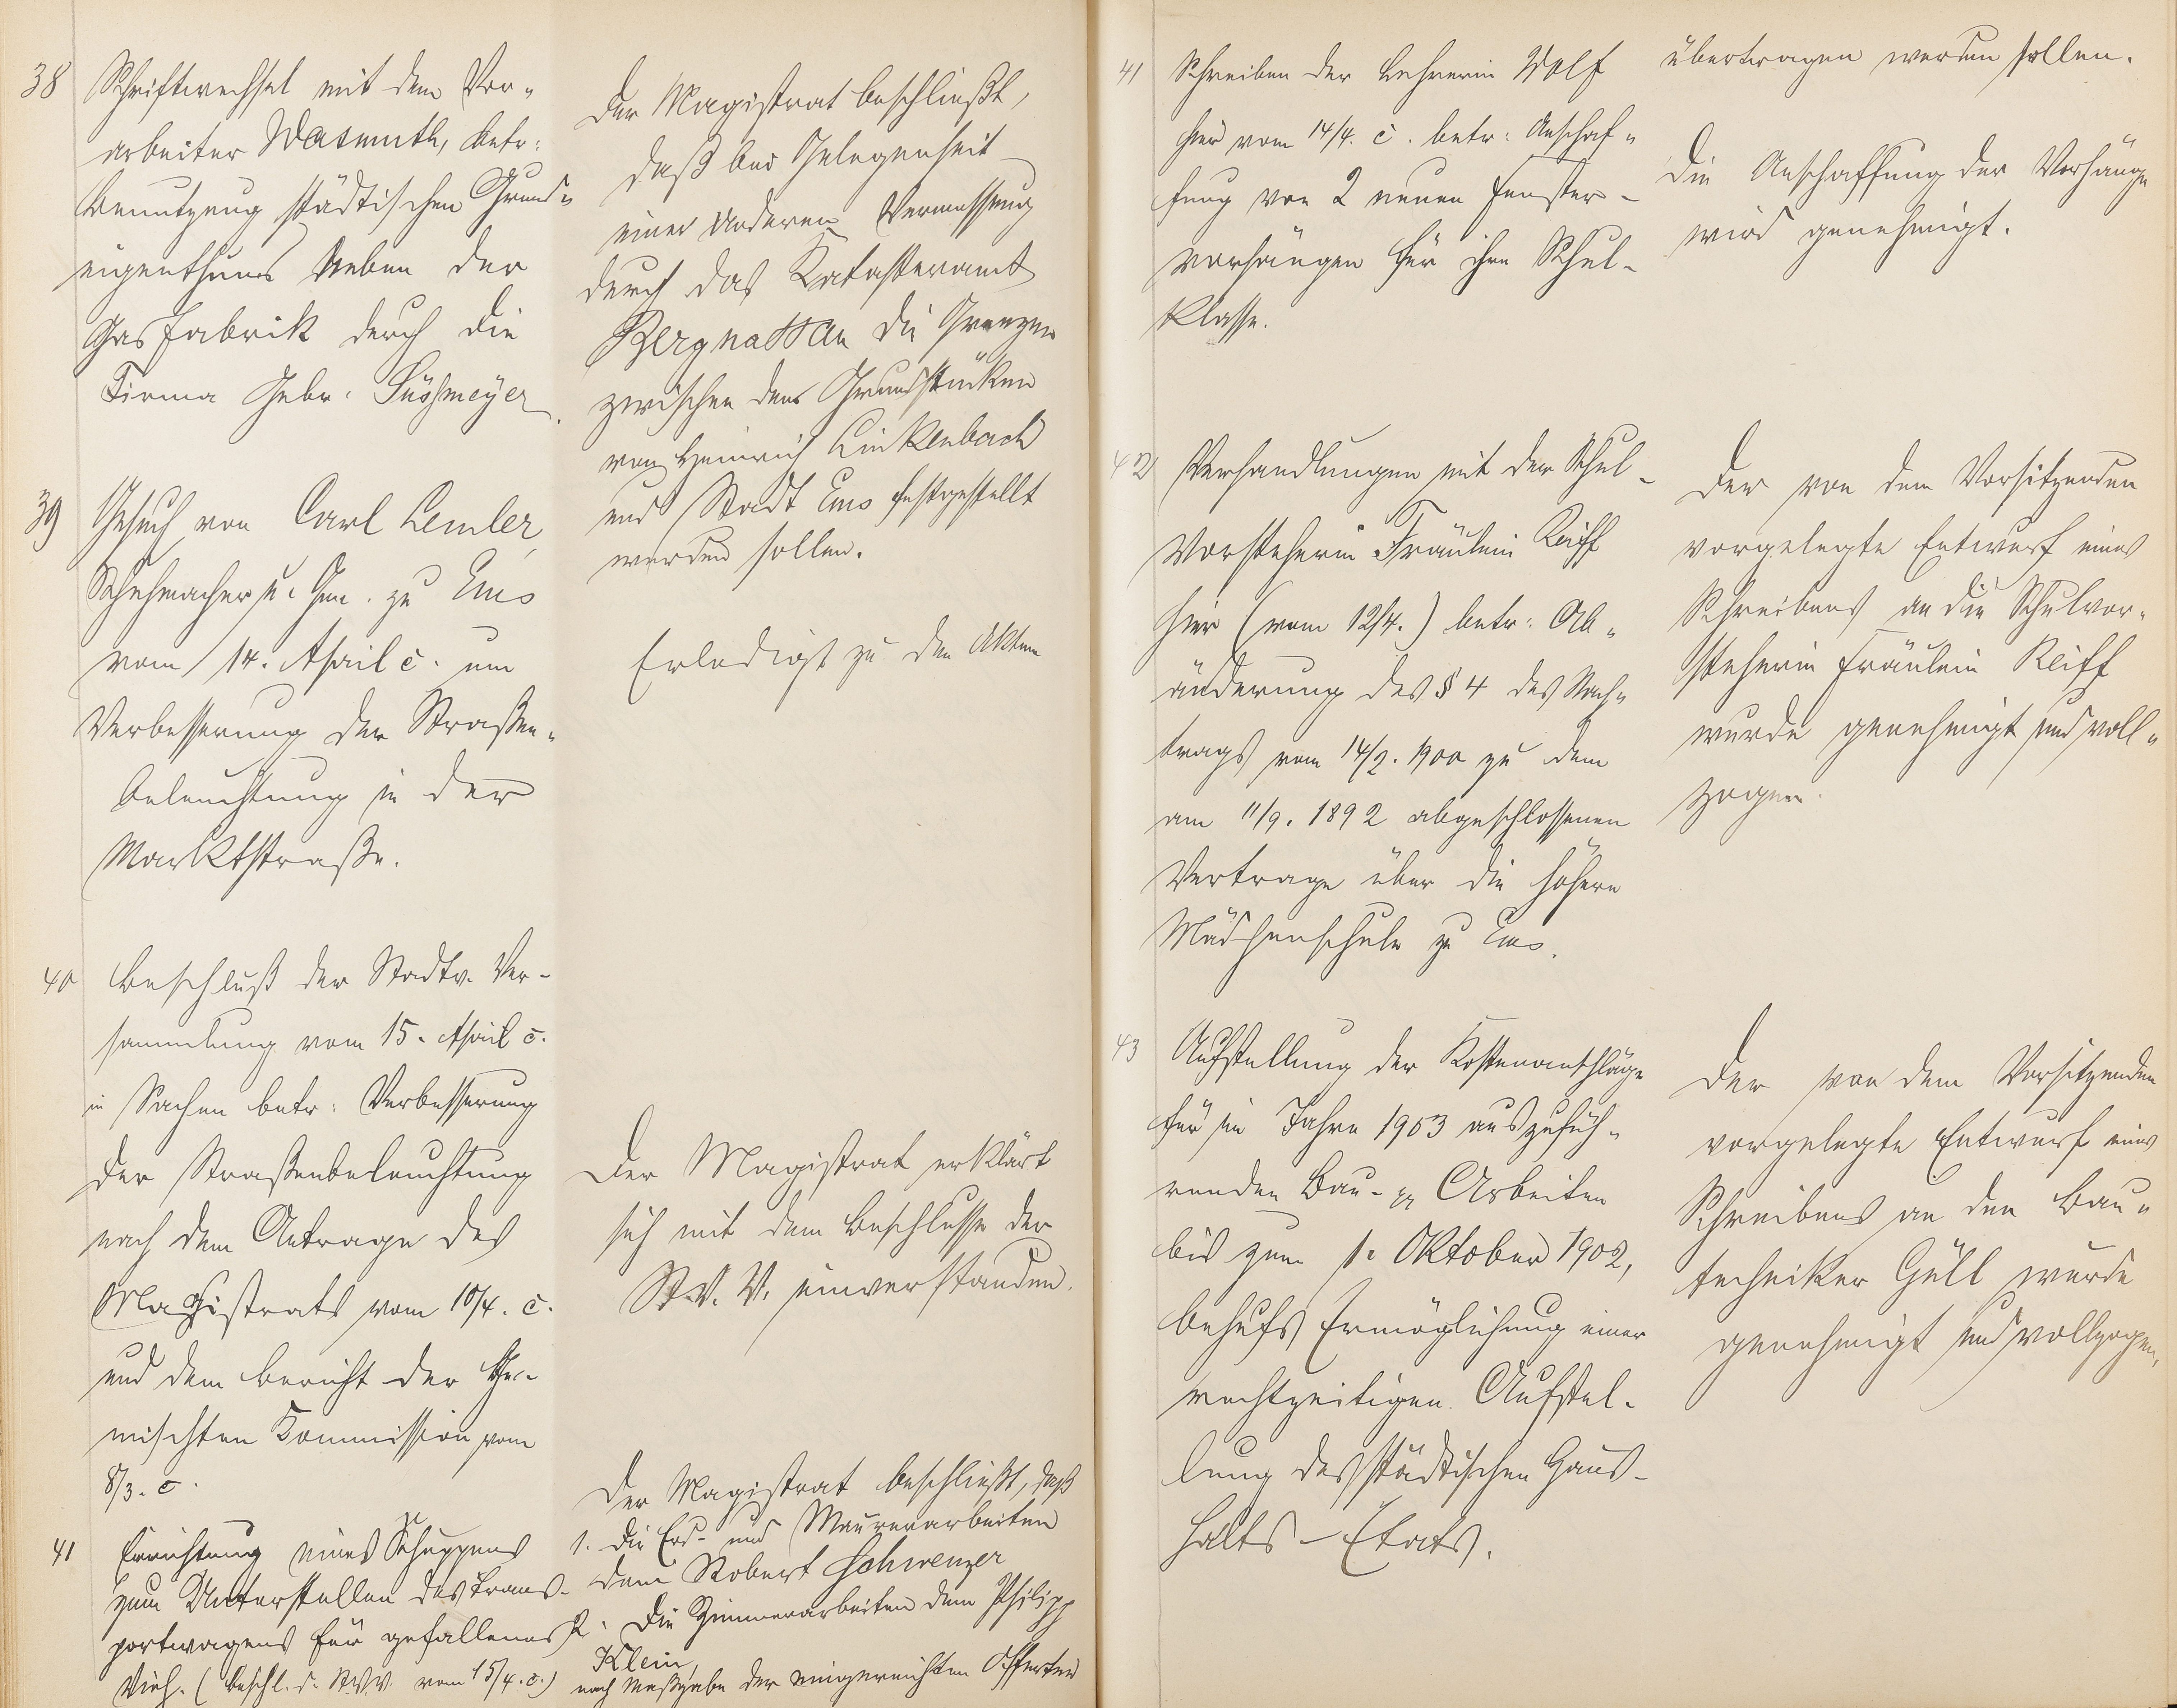 38 Schriftwechsel mit dem Vor-
arbeiter Wasmuth, betr:
Benutzung städtischen Grund-
eigenthums neben der
Gasfabrik durch die
Firma Gebr. Süßmeyer.
Der Magistrat beschließt,
daß bei Gelegenheit
einer anderen Vermessung
durch das Katasteramt
Bergnassau die Grenzen
zwischen den Grundstücken
von Heinrich Linkenbach
und Stadt Ems festgestellt
werden sollen.
39 Gesuch von Carl Lemler,
Schuhmacher u. Gen. zu Ems
vom 14. April c. um
Verbesserung der Straßen-
beleuchtung in der
Marktstraße.
Erledigt zu den Akten
40 Beschluß der Stadtv. Ver-
sammlung vom 15. April c.
in Sachen betr: Verbesserung
der Straßenbeleuchtung
nach dem Antrage des
Magistrats vom 10/4. c.
und dem Bericht der Ge-
mischten Kommission vom
8/3. c.
Der Magistrat erklärt
sich mit dem Beschlusse der
St. V. V. einverstanden.
41 Errichtung eines Schuppens
zum Unterstellen des Trans-
portwagens für gefallenes
Vieh. (Beschl. d. St.V.V. vom 15/4. c.)
Der Magistrat beschließt, daß
1. die Erd- und Maurerarbeiten
dem Robert Schwenzer
2. die Zimmerarbeiten dem Philipp
Klein,
nach Maßgabe der eingereichten Offerten
übertragen werden sollen.
41 Schreiben der Lehrerin Wolf
hier vom 14/4. c. betr: Anschaf-
fung von 2 neuen Fenster-
vorhängen für ihre Schul-
klasse.
Die Anschaffung der Vorhänge
wird genehmigt.
42 Verhandlungen mit der Schul-
vorsteherin Fräulein Reiff
hier (vom 12/4.) betr: Ab-
änderung des § 4 des Nach-
trags vom 14/2. 1900 zu dem
am 11/9. 1892 abgeschlossenen
Vertrage über die höhere
Mädchenschule zu Ems.
Der von dem Vorsitzenden
vorgelegte Entwurf eines
Schreibens an die Schulvor-
steherin Fräulein Reiff
wurde genehmigt und voll-
zogen.
43 Aufstellung der Kostenanschläge
für im Jahre 1903 auszufüh-
renden Bau- pp Arbeiten
bis zum 1. Oktober 1902,
behufs Ermöglichung einer
rechtzeitigen Aufstel-
lung des städtischen Haus-
halts-Etats.
Der von dem Vorsitzenden
vorgelegte Entwurf eines
Schreibens an den Bau-
techniker Güll wurde
genehmigt und vollzogen.